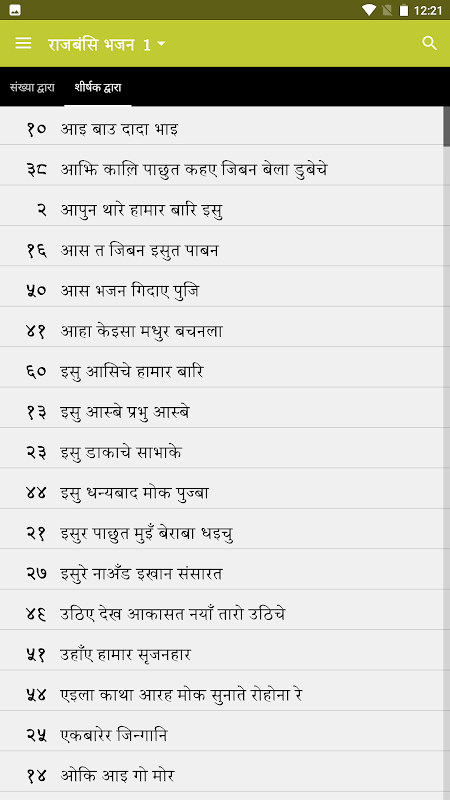 12:21
राजबंसि भजन 1
संख्या द्वारा शीर्षक द्वारा
१० आइ बाउ दादा भाइ
३८ आझि कालि पाछुत कहए जिबन बेला डुबेचे
२ आपुन थारे हामार बारि इसु
१६ आस त जिबन इसुत पाबन
५० आस भजन गिदाए पुजि
४१ आहा केइसा मधुर बचनला
६० इसु आसिचे हामार बारि
१३ इसु आस्बे प्रभु आस्बे
२३ इसु डाकाचे साभाके
४४ इसु धन्यबाद मोक पुज्बा
२१ इसुर पाछुत मुइँ बेराबा धइचु
२७ इसुरे नाअँड इखान संसारत
४६ उठिए देख आकासत नयाँ तारो उठिचे
५१ उहाँए हामार सृजनहार
५४ एइला काथा आरह मोक सुनाते रोहोना रे
२५ एकबारेर जिन्गानि
१४ ओकि आइ गो मोर